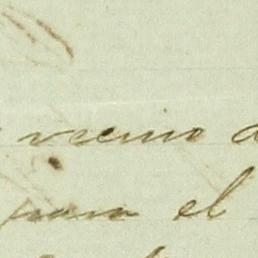 vecino
para el